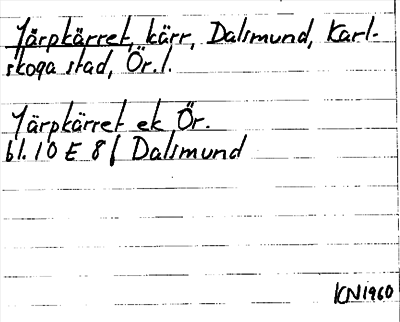 Järpkärret, kärr, Dalsmund, Karl-
skoga stad, Ör.l.
Järpkärret ek Ör.
bl. 10 E 8 f Dalsmund
KN1960